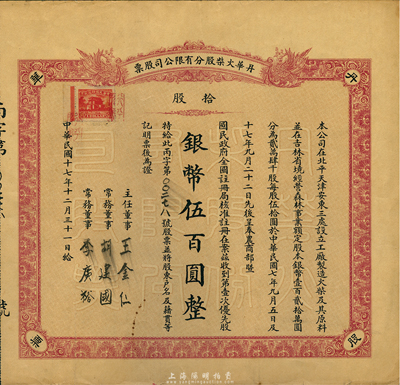 丹華火柴股分有限公司股票
拾股
本公司在北平天津安東三處設立工廠製造火柴及其原料
並在吉林省境經營森林事業額定股本銀幣壹百貳拾萬圓
分為貳萬肆千股每股伍拾圓於中華民國七年九月五日及
十七年九月二十二日先後呈奉農商部暨
國民政府全國註冊局核准註冊在案茲收到第壹次優先股
銀幣伍百圓整
特給此丙字第 號股票並將股東戶名及籍貫等
記明票後為證
主任董事 王金
常務董事 建國
常務董事 李
中華民國十七年十二月三十一日給
股
票
上海陽明拍卖